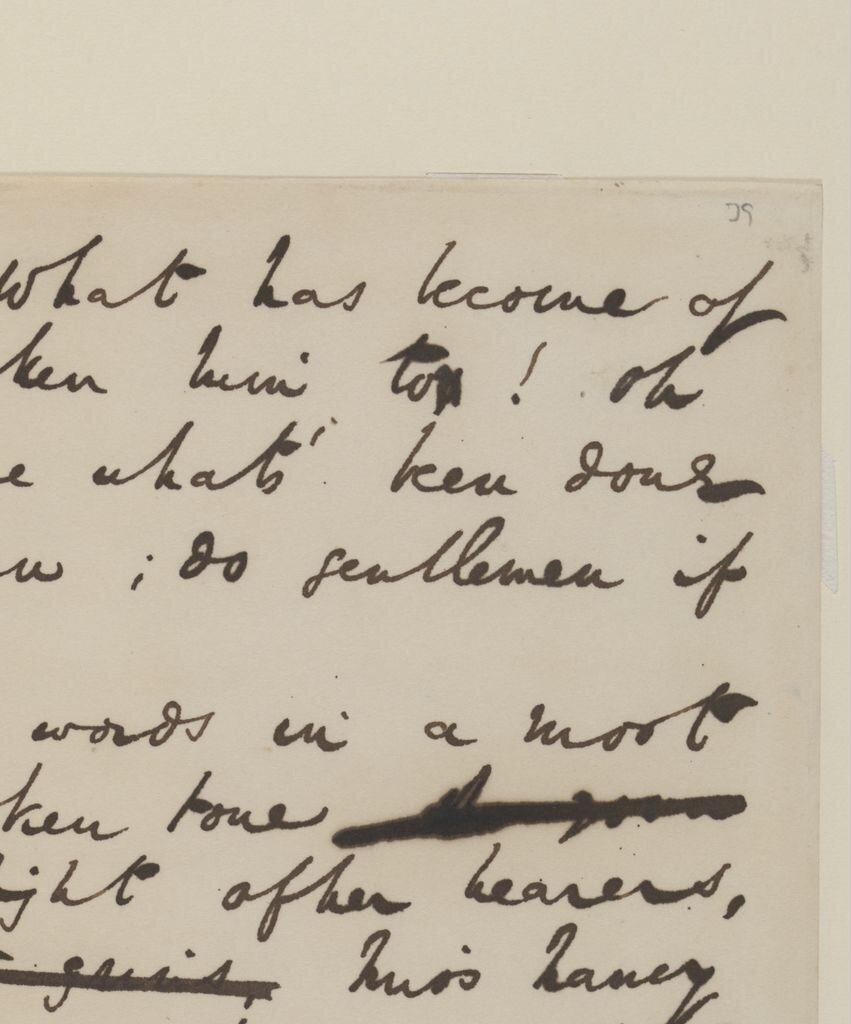 39
What has become of
ken him to ! oh
e what's been done
; do gentlemen if
words in a most
ken tone
ight of her hearers,
Miss Nancy